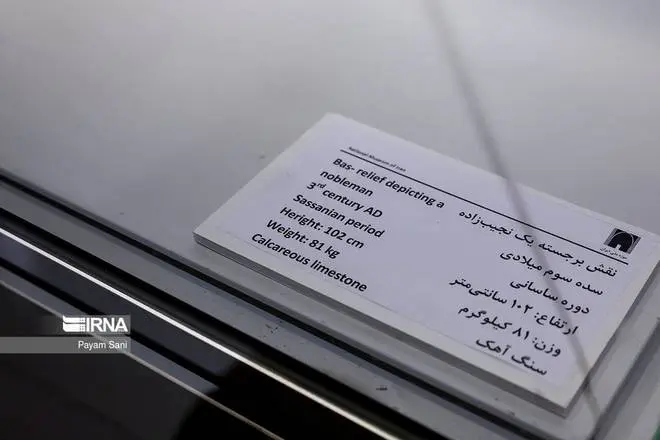 National Museum of Iran
Bas- relief depicting a
nobleman
3rd century AD
Sassanian period
Heright: 102 cm
Weight: 81 kg
Calcareous limestone
موزه ملی ایران
نقش برجسته یک نجیب‌زاده
سده سوم میلادی
دوره ساسانی
ارتفاع: ۱۰۲ سانتی‌متر
وزن: ۸۱ کیلوگرم
سنگ آهک
IRNA
Payam Sani